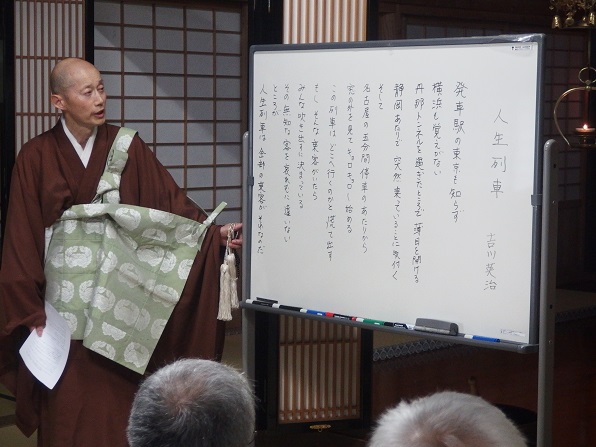 人生列車
吉川英治
発車駅の東京も知らず
横浜も覚えがない
丹那トンネルを過ぎたところで薄目を開ける
静岡あたりで突然乗っていることに気付く
そして
名古屋の五分間停車のあたりから
窓の外を見てキョロキョロし始める
この列車は、どこへ行くのかと慌て出す
もし、そんな乗客がいたら
みんな吹き出すに決まっている
その無知な客を哀れむに違いない
ところが
人生列車は、全部の乗客がそれなのだ